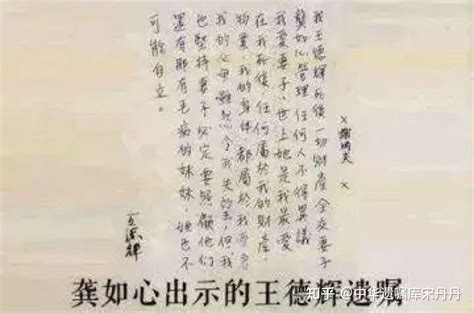 我王德輝死後一切財產全交妻子
龔如心管理任何人不得異議
我愛妻子,也上她是我最愛
在我死後,任何屬於我的財產,
物業,我的身體,都屬於我
我的父母雖然令我失望,但我
也堅持妻子必定要照顧他們
還有那有毛病的妹妹,她也不
可能自立。
王德輝
x 謝炳炎 x
龚如心出示的王德辉遗嘱
知乎 @中华遗嘱库宋丹丹